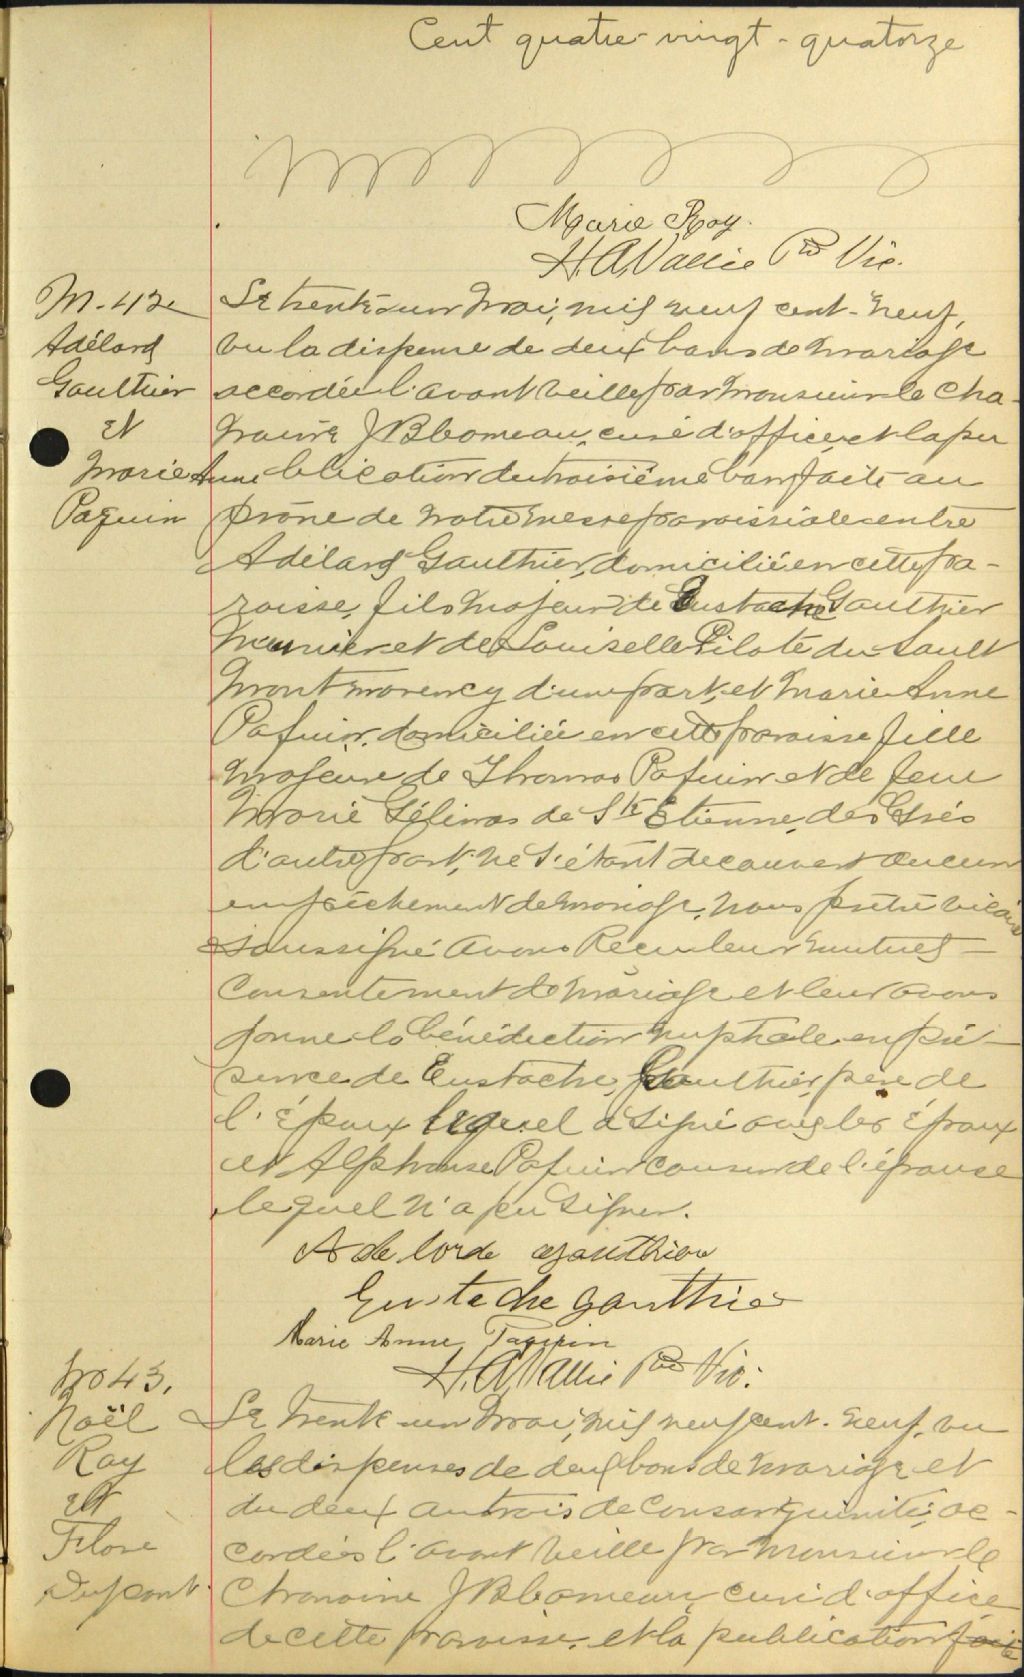 Cent quatre-vingt-quatorze
Marie Roy.
H. A. Vallée Ptre Vic.
M. 42e
Adélard
Gaulthier
et
Marie Anne
Paquin
Le trente-un mai, mil neuf cent-neuf,
vu la dispense de deux bans de mariage
accordée l'avant veille par monsieur le cha-
noine J B Comeau, curé d'office, et la pu
blication du troisième ban faite au
prône de notre messe paroissiale entre
Adélard Gaulthier, domicilié en cette pa-
roisse, fils majeur de Eustache Gaulthier
meunier et de Louiselle Pilote du Sault
Montmorency d'une part, et Marie Anne
Paquin, domiciliée en cette paroisse fille
majeure de Thomas Paquin et de feu
Marie Gélinas de St Etienne des Grès
d'autre part, ne s'étant découvert aucun
empêchement de mariage, nous prêtre vicaire
soussigné avons Reçu leur mutuel
consentement de mariage et leur avons
donné la bénédiction nuptiale en pré-
sence de Eustache Gaulthier, père de
l'époux lequel a signé avec les époux
et Alphonse Paquin cousin de l'épouse
lequel n'a pu signer.
Adelorde gauthier
Eustache gauthier
Marie Anne Paquin
H. A. Vallée Ptre Vic.
No 43.
Noël
Roy
et
Flore
Dupont
Le trente-un mai, mil neuf cent-neuf, vu
les dispenses de deux bans de mariage et
du deux au trois de consanguinité, ac-
cordées l'avant veille par monsieur le
Chanoine J B Comeau, curé d'office
de cette paroisse, et la publication faite